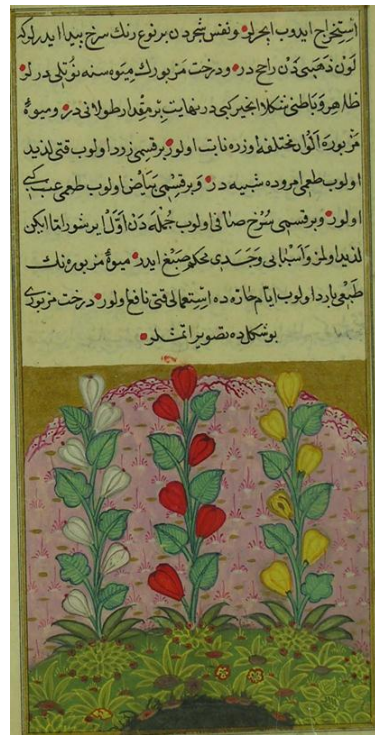 استخراج ایدوب ایچرلر و نفس شجردن بر نوع رنك سرخ پیدا ایدرلر كه
لون ذهبیدن راجحدر و درخت مزبورك میوه سنه نوتلی درلر
ظاهر و باطنی شكلا انجیر كبی در نهایت بر مقدار طولانی در و میوهٔ
مزبوره الوان مختلفه اوزره نابت اولور بر قسمی زرد اولوب قتی لذیذ
اولوب طعمی امروده شبیه در و بر قسمی بیاض اولوب طعمی عنب كبی
اولور و بر قسمی سرخ صافی اولوب جمله دن اولا بر شور اتا لكن
لذیذ اولمز و اسنانی وجسدی محكم صبغ ایدر میوهٔ مزبوره نك
طبعی بارد اولوب ایام حاره ده استعمالی قتی نافع اولور درخت مزبوری
بو شكلده تصویر اتمشلر